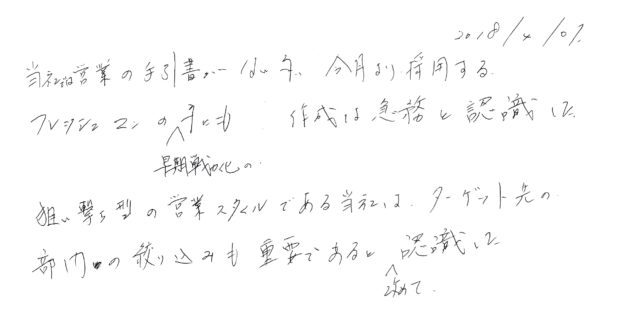 2018/4/07.
当社は営業の手引書がない為、今月より採用する
フレッシュマンの為にも 作成は急務と認識した
早期戦力化の
狙い撃ち型の営業スタイルである当社は、ターゲット先の
部門の絞り込みも重要であると認識した
改めて.